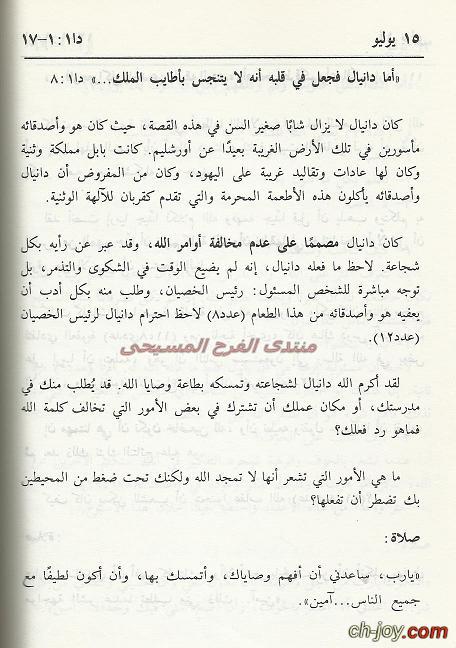 ١٥ يوليو
دا١:١-١٧
«أما دانيال فجعل في قلبه أنه لا يتنجس بأطايب الملك...» دا١:٨
كان دانيال لا يزال شابًا صغير السن في هذه القصة، حيث كان هو وأصدقائه
مأسورين في تلك الأرض الغريبة بعيدًا عن أورشليم. كانت بابل مملكة وثنية
وكان لها عادات وتقاليد غريبة على اليهود، وكان من المفروض أن دانيال
وأصدقائه يأكلون هذه الأطعمة المحرمة والتي تقدم كقربان للآلهة الوثنية.
كان دانيال مصممًا على عدم مخالفة أوامر الله، وقد عبر عن رأيه بكل
شجاعة. لاحظ ما فعله دانيال، إنه لم يضيع الوقت في الشكوى والتذمر، بل
توجه مباشرة للشخص المسئول: رئيس الخصيان، وطلب منه بكل أدب أن
يعفيه هو وأصدقائه من هذا الطعام (عدد٨) لاحظ احترام دانيال لرئيس الخصيان
(عدد١٢).
منتدى الفرح المسيحى
لقد أكرم الله دانيال لشجاعته وتمسكه بطاعة وصايا الله. قد يُطلب منك في
مدرستك، أو مكان عملك أن تشترك في بعض الأمور التي تخالف كلمة الله
فماهو رد فعلك؟
ما هي الأمور التي تشعر أنها لا تمجد الله ولكنك تحت ضغط من المحيطين
بك تضطر أن تفعلها؟
صلاة:
«يارب، ساعدني أن أفهم وصاياك، وأتمسك بها، وأن أكون لطيفًا مع
جميع الناس...آمين».
ch-joy.com